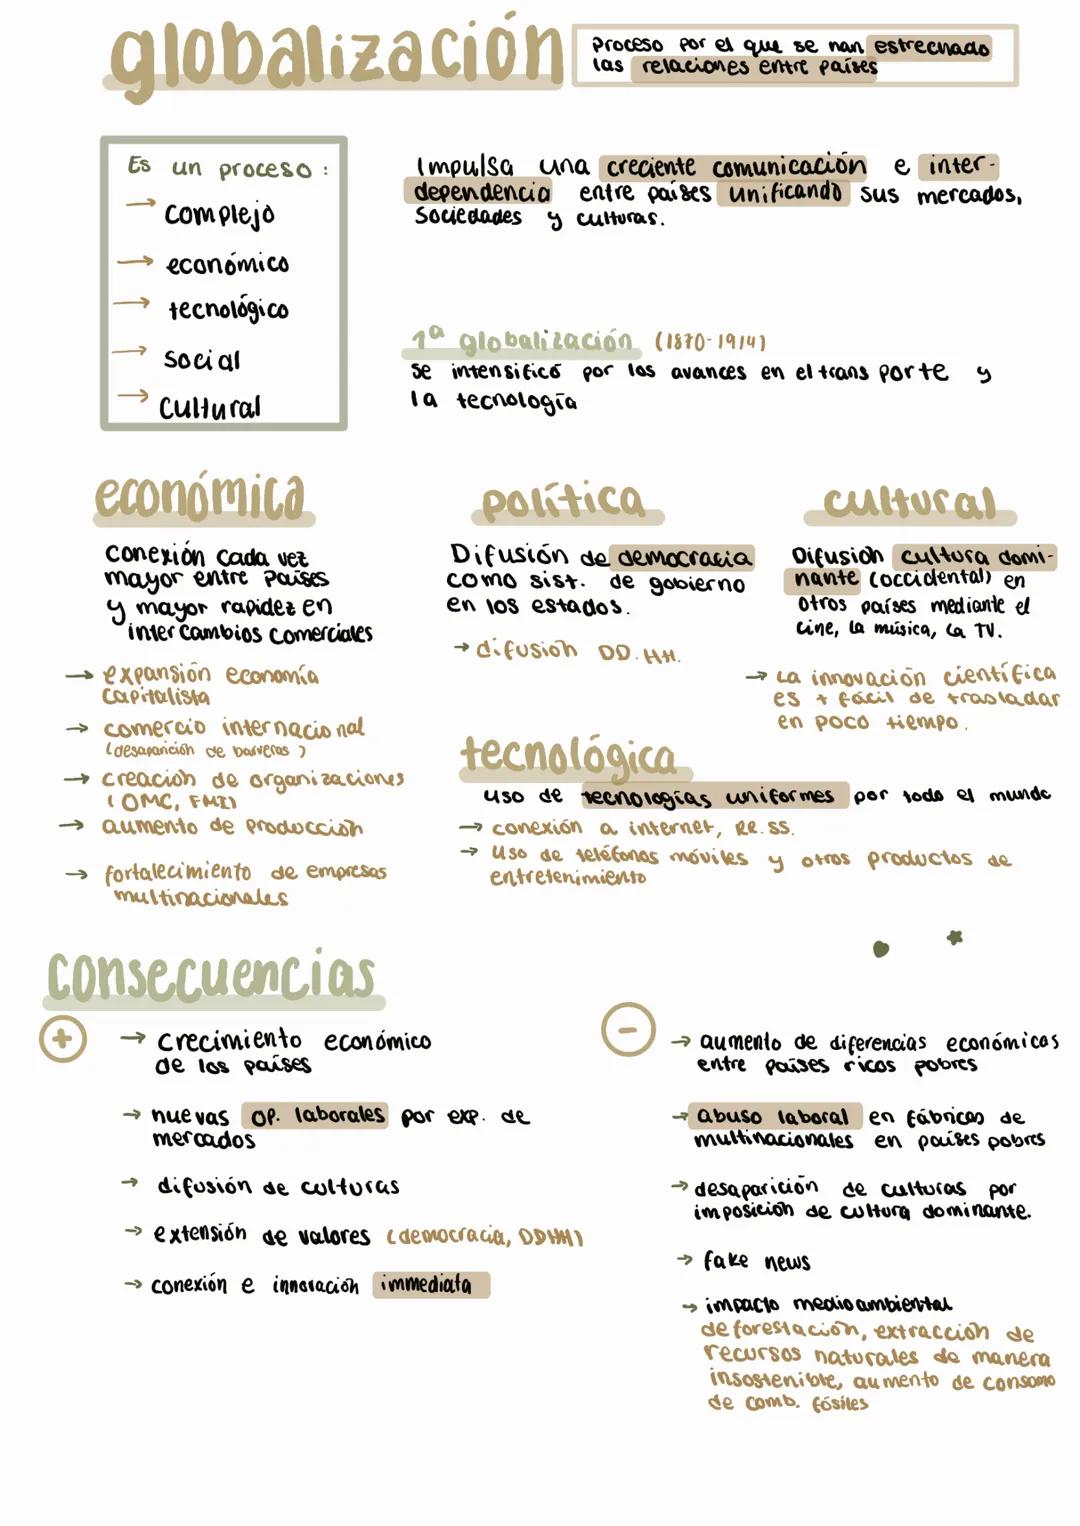 globalización
Proceso por el que se han estrechado
las relaciones entre países
Es un proceso :
→ complejo
→ económico
→ tecnológico
→ social
→ cultural
Impulsa una creciente comunicación e inter-
dependencia entre países unificando sus mercados,
sociedades y culturas.
1ª globalización (1870-1914)
se intensificó por los avances en el transporte y
la tecnología
económica
conexión cada vez
mayor entre países
y mayor rapidez en
intercambios comerciales
→ expansión economía
capitalista
→ comercio internacional
(desaparición de barreras)
→ creación de organizaciones
(OMC, FMI)
→ aumento de producción
→ fortalecimiento de empresas
multinacionales
política
Difusión de democracia
como sist. de gobierno
en los estados.
→ difusión DD.HH.
cultural
Difusión cultura domi-
nante (occidental) en
otros países mediante el
cine, la música, la TV.
→ La innovación científica
es + fácil de trasladar
en poco tiempo.
tecnológica
uso de tecnologías uniformes por todo el mundo
→ conexión a internet, RR.SS.
→ uso de teléfonos móviles y otros productos de
entretenimiento
consecuencias
+
→ crecimiento económico
de los países
→ nuevas op. laborales por exp. de
mercados
→ difusión de culturas
→ extensión de valores (democracia, DDHH)
→ conexión e innovación immediata
-
→ aumento de diferencias económicas
entre países ricos pobres
→ abuso laboral en fábricas de
multinacionales en países pobres
→ desaparición de culturas por
imposición de cultura dominante.
→ fake news
→ impacto medioambiental
deforestación, extracción de
recursos naturales de manera
insostenible, aumento de consumo
de comb. fósiles